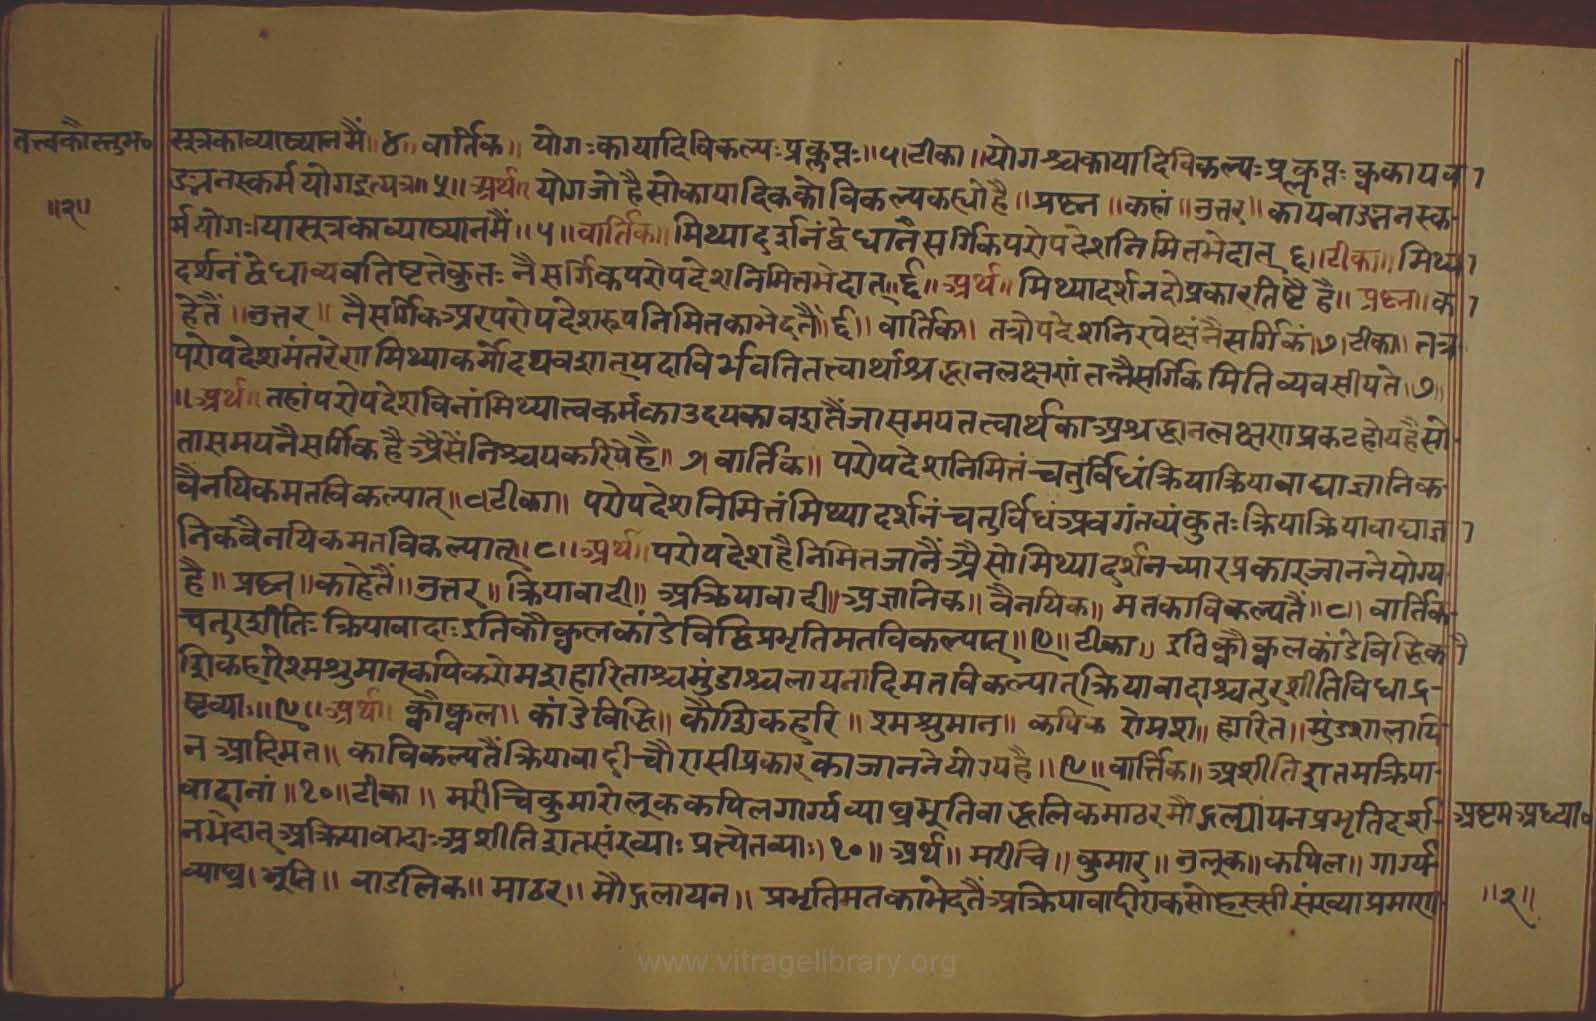 तत्त्वकौस्तुभ॰
॥२॥
सूत्रकाव्याख्यानमैं॥४॥ वार्तिक॥ योगःकायादिविकल्पःप्रक्लृप्तः॥५।टीका॥योगश्चकायादिविकल्पःप्रक्लृप्तः क्वकायवा
ङ्मनस्कर्मयोगइत्यत्र॥५॥ अर्थ॥ योगजोहैसोकायादिककोविकल्पकह्योहै॥ प्रष्न॥ कहां॥ उत्तर॥ कायवाङ्मनस्क
र्मयोगः।यासूत्रकाव्याख्यानमैं॥५॥वार्तिक॥ मिथ्यादर्शनंद्वेधानैसर्गिकपरोपदेशनिमित्तभेदात् ६॥टीका॥ मिथ्या
दर्शनंद्वेधाव्यवतिष्टतेकुतः नैसर्गिकपरोपदेशनिमित्तभेदात्॥६॥ अर्थ॥ मिथ्यादर्शनदोप्रकारतिष्टै है॥ प्रष्न॥ का
हेतैं॥ उत्तर॥ नैसर्गिकअरपरोपदेशरूपनिमित्तकाभेदतैं॥६॥ वार्तिक॥ तत्रोपदेशनिरपेक्षंनैसर्गिकं।७।टीका॥ तत्र
परोपदेशमंतरेणमिथ्याकर्मोदयवशात्यदाविर्भवतितत्त्वार्थाश्रद्धानलक्षणं तन्नैसर्गिकमितिव्यवसीयते।७॥
॥अर्थ॥ तहांपरोपदेशविनांमिथ्यात्वकर्मकाउदयकावशतैंजासमयतत्त्वार्थकाअश्रद्धानलक्षणप्रकटहोयहैसो
तासमयनैसर्गिकहैअैसेंनिश्चयकरियेहै॥ ७। वार्तिक॥ परोपदेशनिमित्तंचतुर्विधंक्रियाक्रियावाद्याज्ञानिक
वैनयिकमतविकल्पात्॥८।टीका॥ परोपदेशनिमित्तंमिथ्यादर्शनंचतुर्विधंअवगंतव्यंकुतःक्रियाक्रियावाद्याज्ञा
निकवैनयिकमतविकल्पात्।८॥ अर्थ॥परोपदेशहैनिमित्तजानैंअैसोमिथ्यादर्शनच्यारप्रकारजाननेयोग्य
है॥ प्रष्न॥काहेतैं॥ उत्तर॥ क्रियावादी॥ अक्रियावादी॥अज्ञानिक॥ वैनयिक॥ मतकाविकल्पतैं॥८। वार्तिक
चतुरशीतिःक्रियावादाःइतिकौक्वलकांडेविद्धिप्रभृतिमतविकल्पात्॥९॥ टीका॥ इतिक्वौक्वलकांडेविद्धिकौ
शिकहरिश्मश्रुमान्कपिकरोमशहारिताश्चमुंडाश्वलायनादिमतविकल्पात्क्रियावादाश्चतुरशीतिविधाद्र
ष्टव्याः॥९॥अर्थ॥ क्वौक्वल॥ कांडेविद्धि॥ कौशिकहरि॥ श्मश्रुमान॥ कपिक रोमश॥ हारित॥मुंडशालायि
न आदिमत॥ काविकल्पतैंक्रियावादीचौरासीप्रकारकाजाननेयोग्यहै॥९॥वार्त्तिक॥ अशीतिशतमक्रिया
वादानां॥१०॥टीका॥ मरीचिकुमारोलूककपिलगार्ग्यव्याघ्रभूतिवाद्धलिकमाठरमौद्गल्यायनप्रभृतिदर्श
नभेदात्अक्रियावादाःअशीतिशतसंख्याः प्रत्येतव्याः।१०॥ अर्थ॥ मरीचि॥ कुमार॥ उलूक॥ कपिल॥ गार्ग्य
व्याघ्र।भूति॥ वाडलिक॥ माठर॥ मौद्गलायन॥ प्रभृतिमतकाभेदतैंअक्रियावादीएकसोहअस्सीसंख्याप्रमाण
अष्टमअध्या॰
॥२॥
www.vitragelibrary.org